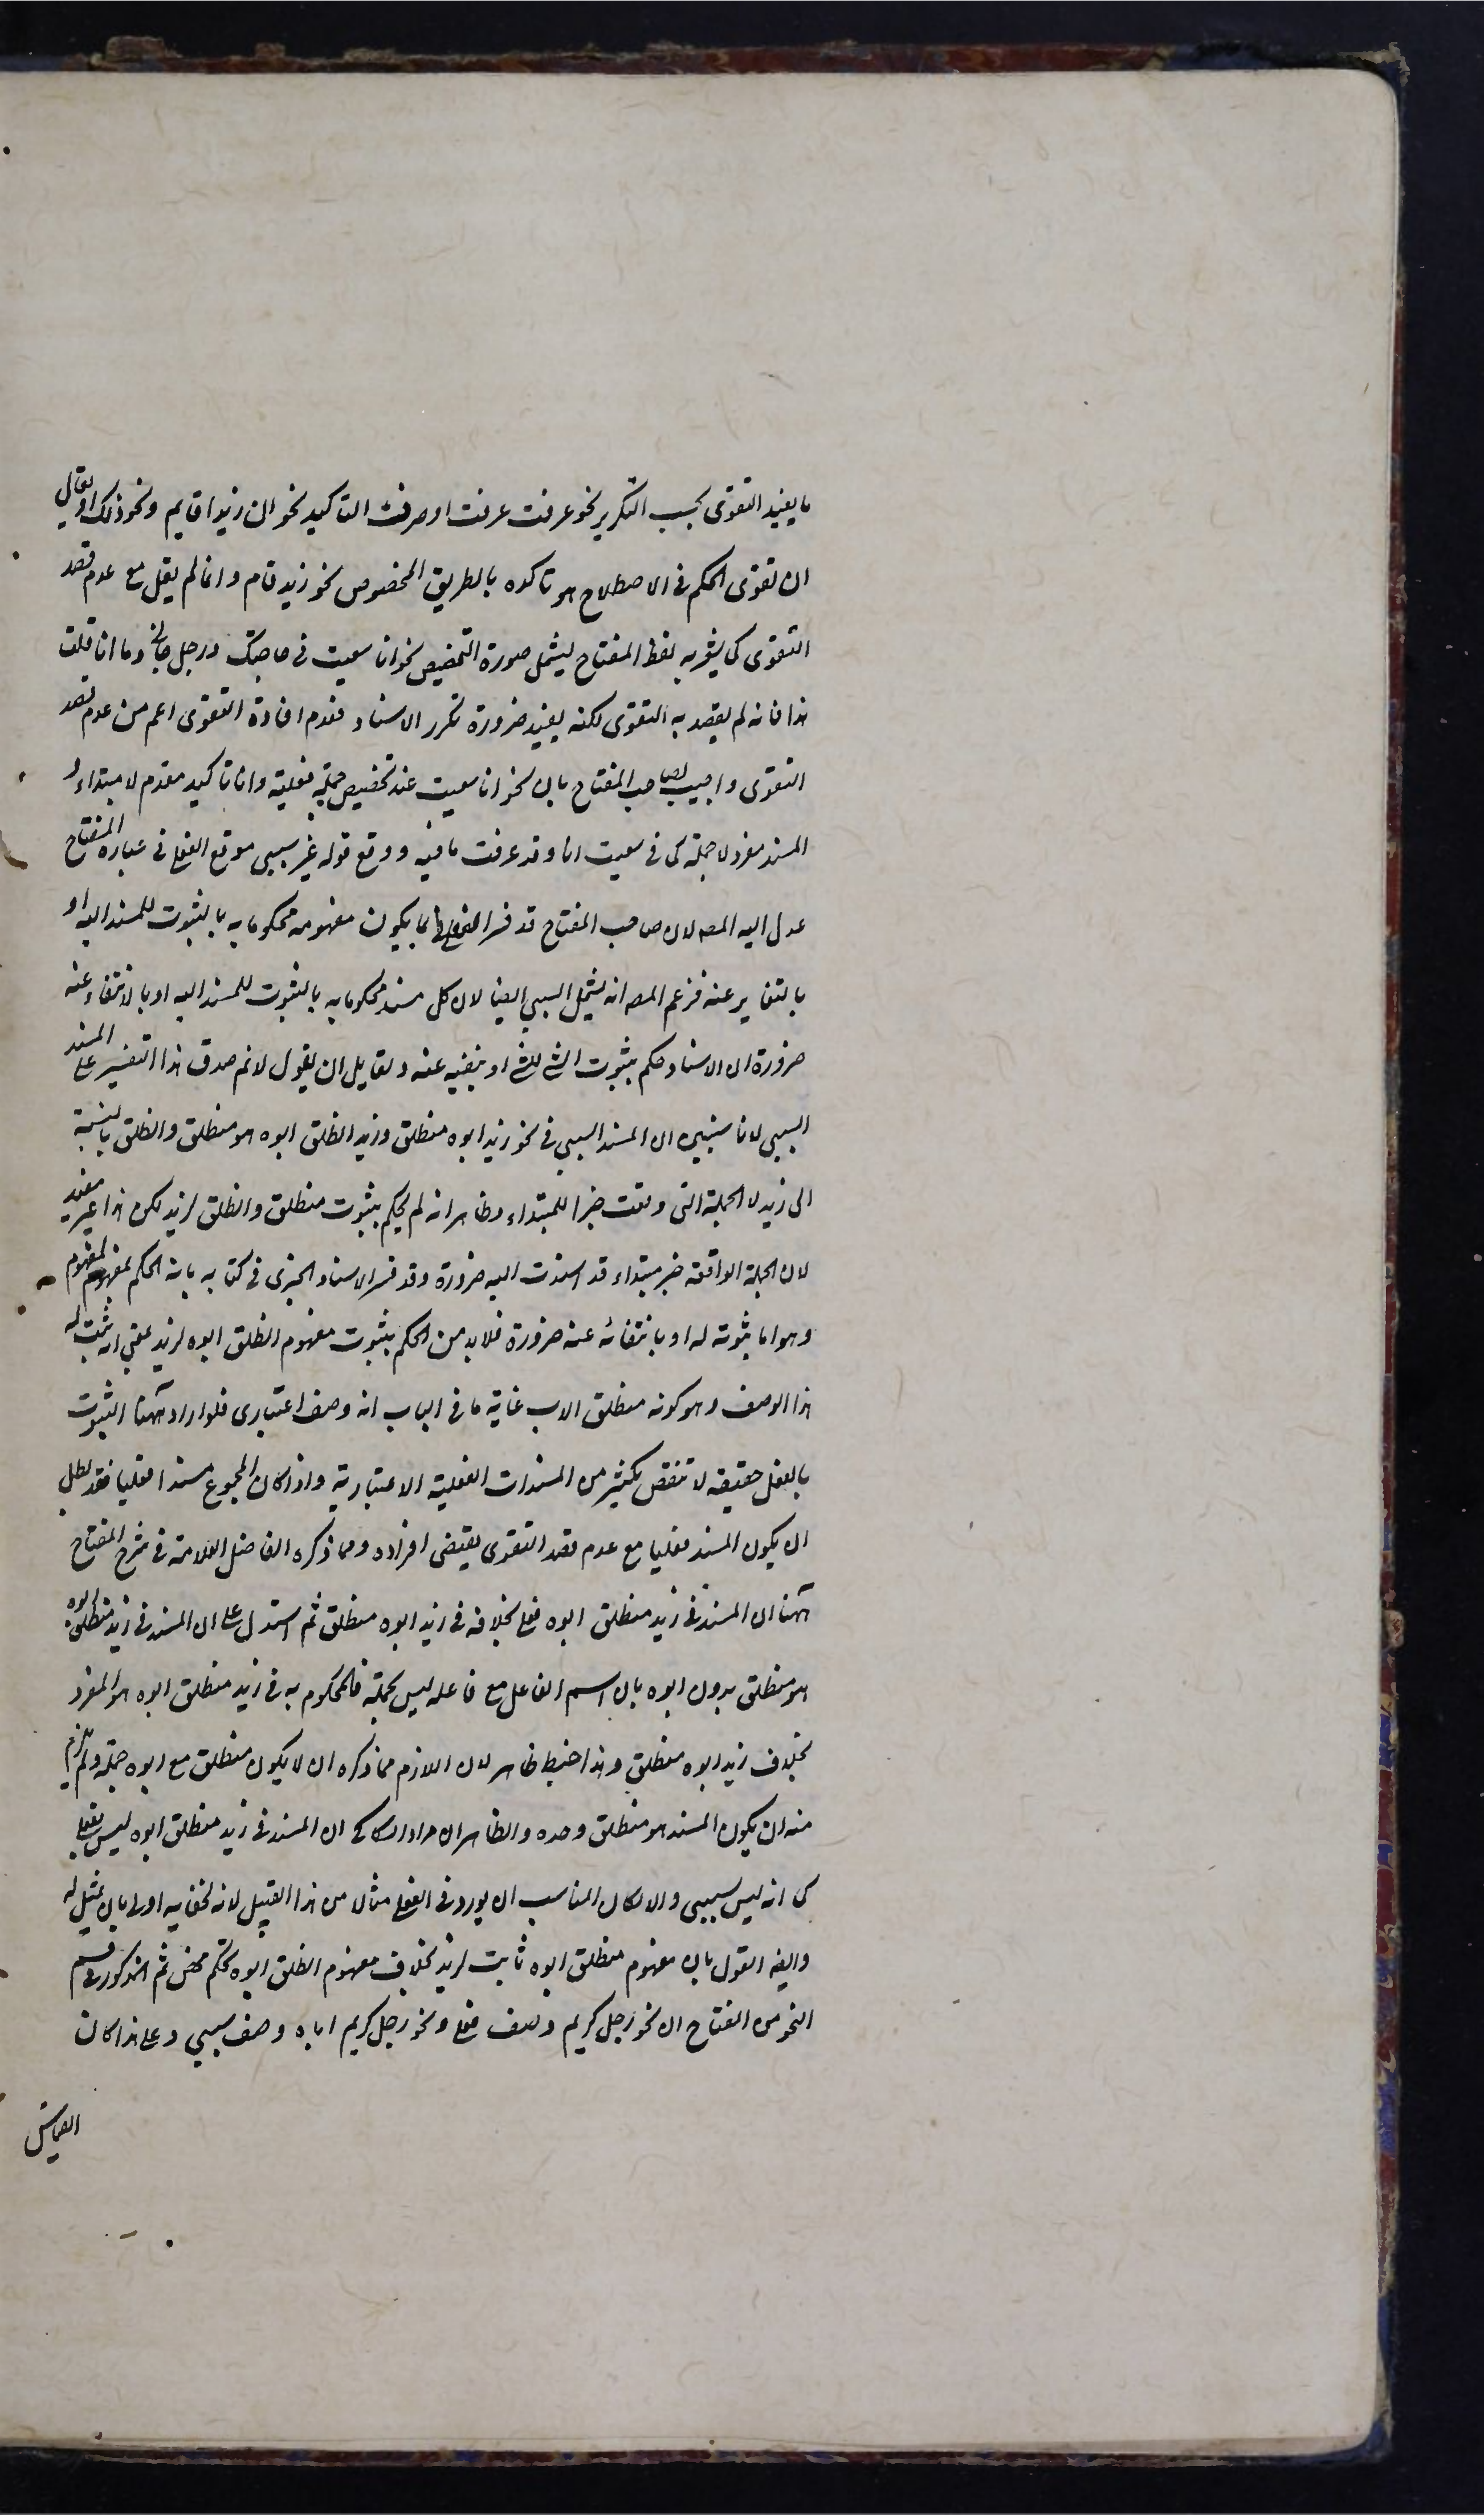 ما يفيد التقوى بحسب التكرير نحو عرفت عرفت او حرف التاكيد نحو ان زيدا قايم ونحو ذلك او يقال
ان تقوى الحكم فى الاصطلاح هو تاكده بالطريق المخصوص نحو زيد قام وانما لم يقل مع عدم قصد
التقوى كما يشعر به لفظ المفتاح ليشمل صورة التخصيص نحو انا سعيت فى حاجتك ورجل جاءنى وما انا قلت
هذا فانه لم يقصد به التقوى لكنه يفيد ضرورة تكرر الاسناد فعدم افادة التقوى اعم من عدم قصد
التقوى واجيب لصاحب المفتاح بان نحو انا سعيت عند تخصيص جملة فعلية وانا تاكيد مقدم لا مبتداء و
المسند مفرد لا جملة كما فى سعيت انا وقد عرفت ما فيه ووقع قوله غير سببى موقع الفعلى فى عبارة المفتاح
عدل اليه المصه لان صاحب المفتاح قد فسر الفعلى بما يكون مفهومه محكوما به بالثبوت للمسند اليه او
بالنفى عنه فزعم المصه انه يشمل السببى ايضا لان كل مسند محكوما به بالثبوت للمسند اليه او بالانتفاء عنه
ضرورة ان الاسناد حكم بثبوت الشئ للشئ او بنفيه عنه ولقايل ان يقول لا نم صدق هذا التفسير على المسند
السببى لانا سنبين ان المسند السببى فى نحو زيد ابوه منطلق وزيد انطلق ابوه هو منطلق وانطلق بالنسبة
الى زيد لا الجملة التى وقعت خبرا للمبتداء وظاهر انه لم يحكم بثبوت منطلق وانطلق لزيد لكن هذا غير مفيد
لان الجملة الواقعة خبر مبتداء قد اسندت اليه ضرورة وقد فسر الاسناد الخبرى فى كتابه بانه الحكم بمفهوم لمفهوم
وهو اما بثبوته له او بانتفائه عنه ضرورة فلابد من الحكم بثبوت مفهوم انطلق ابوه لزيد بمعنى انه ثبت له
هذا الوصف وهو كونه منطلق الاب غاية ما فى الباب انه وصف اعتبارى فلو اراد ههنا الثبوت
بالفعل حقيقه لا تنقض بكثير من المسندات الفعلية الاعتبارية واذا كان المجموع مسندا فعليا فقد بطل
ان يكون المسند فعليا مع عدم قصد التقوى يقتضى افراده ومما ذكره الفاضل العلامة فى شرح المفتاح
ههنا ان المسند فى زيد منطلق ابوه فعلى بخلافه فى زيد ابوه منطلق ثم استدل على ان المسند فى زيد منطلق ابوه
هو منطلق بدون ابوه بان اسم الفاعل مع فاعله ليس بجملة فالمحكوم به فى زيد منطلق ابوه هو المفرد
بخلاف زيد ابوه منطلق وهذا خبط ظاهر لان اللازم مما ذكره ان لا يكون منطلق مع ابوه جملة ولم يلزم
منه ان يكون المسند هو منطلق وحده والظاهر ان مراد السكاكى ان المسند فى زيد منطلق ابوه ليس بفعلى
كما انه ليس بسببى والا لكان المناسب ان يورد فى الفعلى مثالا من هذا القبيل لانه لخفايه اولى بان يمثل له
وايضه القول بان مفهوم منطلق ابوه ثابت لزيد بخلاف مفهوم انطلق ابوه تحكم محض ثم المذكور فى قسم
النحو من المفتاح ان نحو رجل كريم وصف فعلى ونحو رجل كريم اباه وصف سببى وعلى هذا كان
القياس